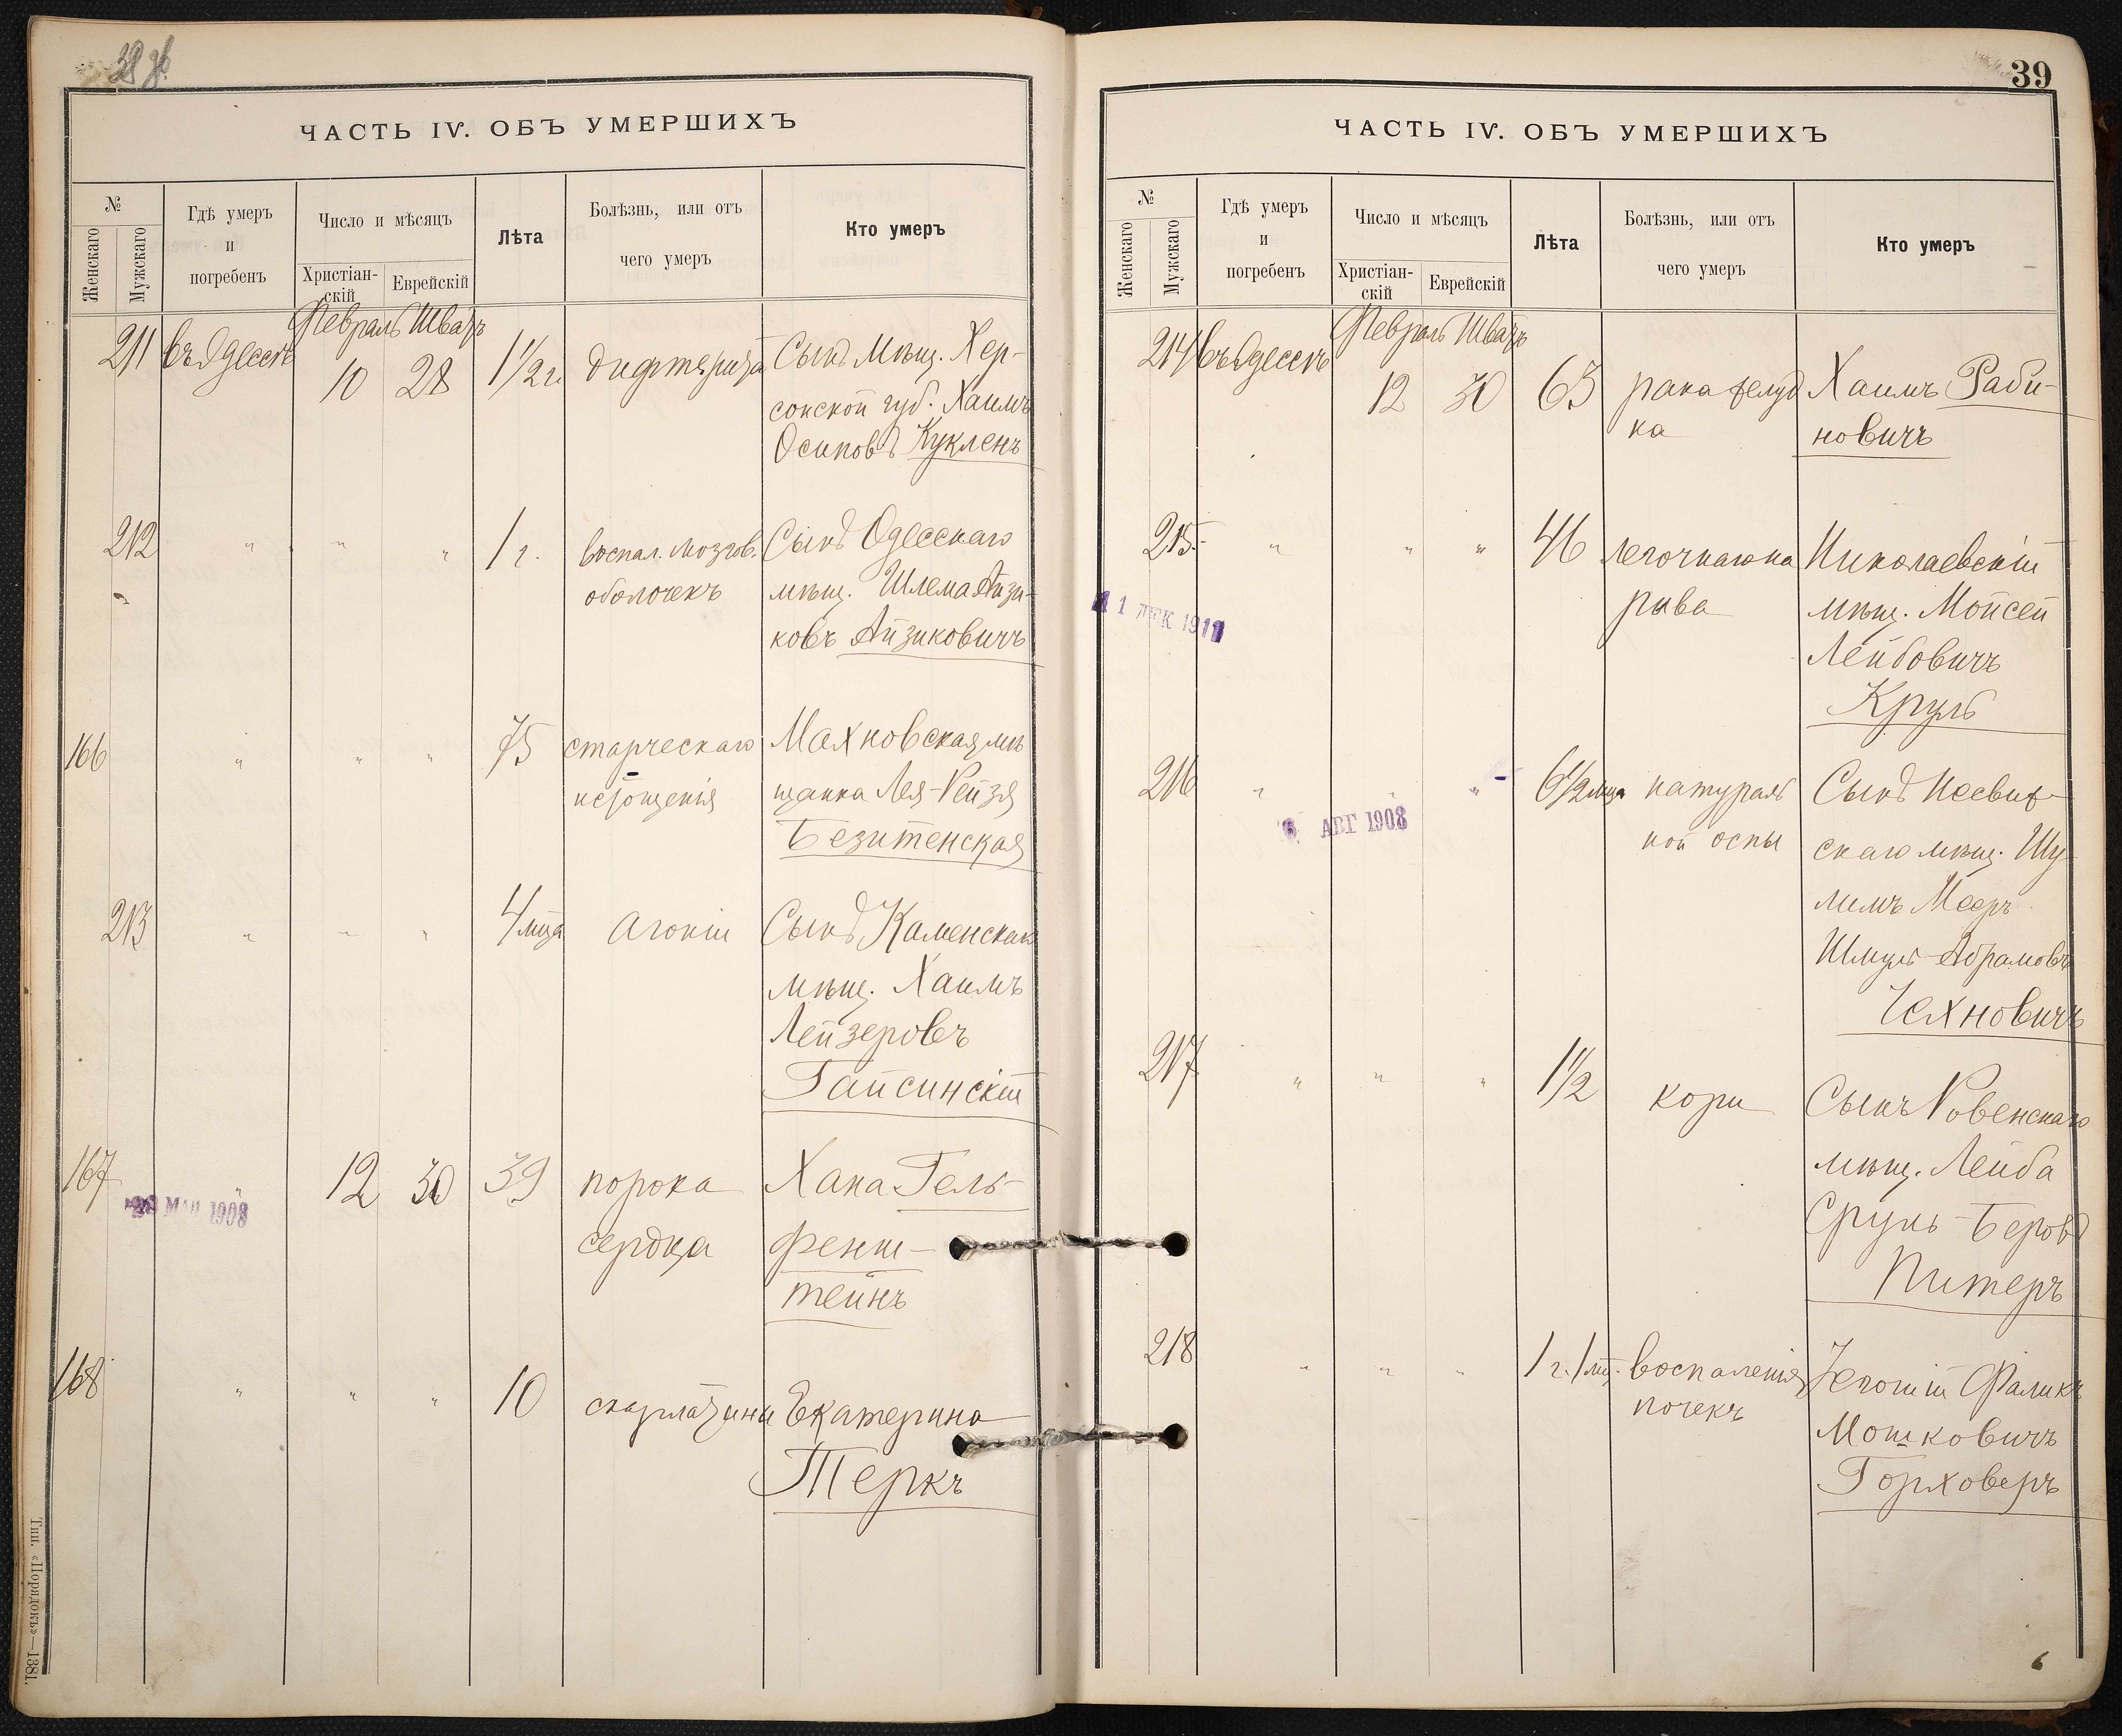 38 об.
ЧАСТЬ IV. ОБЪ УМЕРШИХЪ
№
Женскаго
Мужскаго
Гдѣ умеръ
и
погребенъ
Число и мѣсяцъ
Христіан-
скій
Еврейскій
Лѣта
Болѣзнь, или отъ
чего умеръ
Кто умеръ
Февраль Шватъ
211 въ Одессѣ 10 28 1 1/2 г. дифтерита Сынъ мѣщ. Хер-
сонской губ. Хаимъ
Осиповъ Кукленъ
212 " " " 1 г. воспал. мозгов. Сынъ Одесскаго
оболочекъ мѣщ. Шлема Айзи-
ковъ Айзиковичъ
166 " " " 75 старческаго Махновская мѣ
истощенія щанка Лея-Рейзя
Безитенская
213 " " " 4 мца агоніи Сынъ Каменскаго
мѣщ. Хаимъ
Лейзеровъ
Гайсинскій
167 " 12 30 39 порока Хана Гель-
28 МАЙ 1908
сердца фенш-
тейнъ
168 " " " 10 скарлатины Екатерина
Теркъ
Тип. «Порядокъ»—1381.
39
ЧАСТЬ IV. ОБЪ УМЕРШИХЪ
№
Женскаго
Мужскаго
Гдѣ умеръ
и
погребенъ
Число и мѣсяцъ
Христіан-
скій
Еврейскій
Лѣта
Болѣзнь, или отъ
чего умеръ
Кто умеръ
Февраль Шватъ
214 въ Одессѣ 12 30 65 рака желуд Хаимъ Раби-
ка новичъ
215 " " " 46 легочнаго на Николаевскій
1 ДЕК 1911
рыва мѣщ. Мойсей
Лейбовичъ
Круль
216 " " " 6 1/2 мца натураль Сынъ Несвиж-
АВГ 1908
ной оспы скаго мѣщ. Шу-
лимъ Мееръ
Шмуль-Абрамовъ
Чехновичъ
217 " " " 1 1/2 кори Сынъ Ровенскаго
мѣщ. Лейба
Сруль-Беровъ
Питеръ
218 " " " 1 г. 1 мц. воспаленія Фаликъ
почекъ Мошковичъ
Горховеръ
6